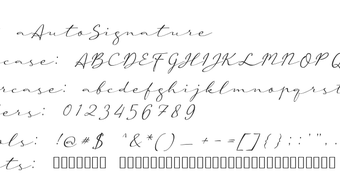 aAutoSignature
case: ABCDEFGHIJKLMNOPQ
rcase: abcdefghijklmnopqrst
ers: 0123456789
ols: !@#$ ^&*()_+-=[]{};:'",.
ts: